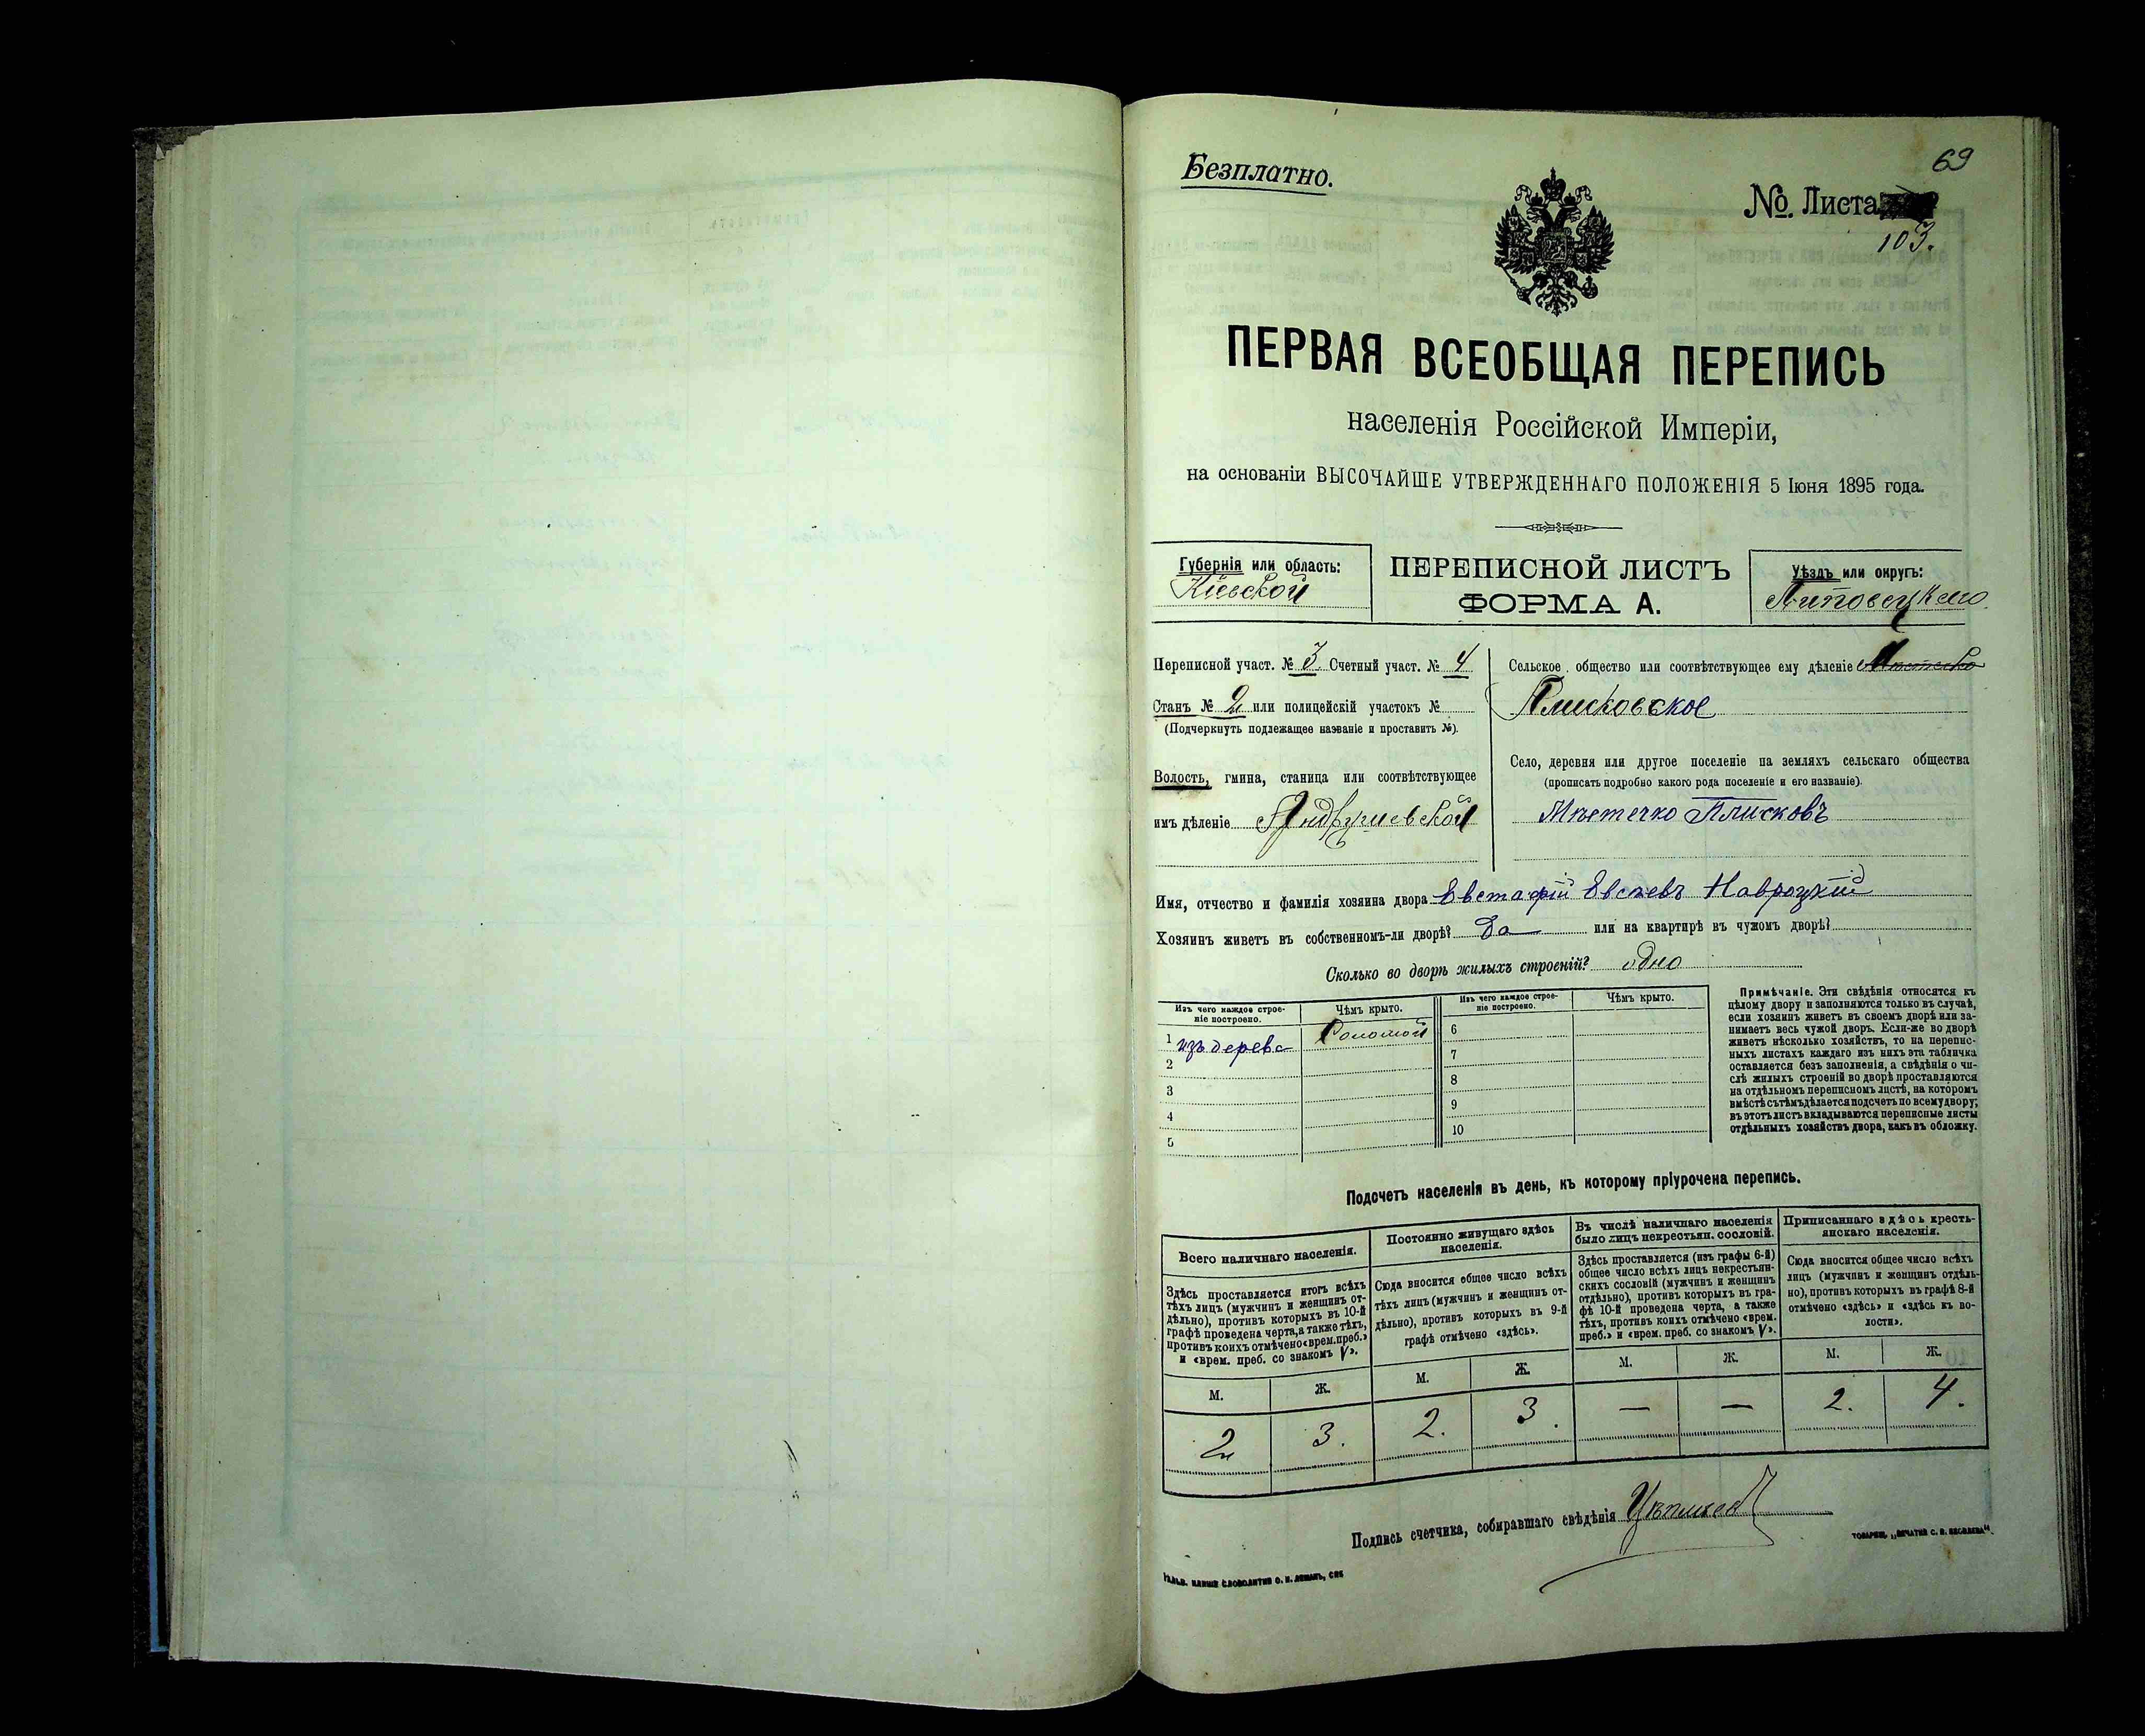 69
Безплатно.
№. Листа
103.
ПЕРВАЯ ВСЕОБЩАЯ ПЕРЕПИСЬ
населенія Россійской Имперіи,
на основаніи ВЫСОЧАЙШЕ УТВЕРЖДЕННАГО ПОЛОЖЕНІЯ 5 Іюня 1895 года.
Губернія или область:
Кіевской
ПЕРЕПИСНОЙ ЛИСТЪ
ФОРМА А.
Уѣздъ или округъ:
Липовецкаго
Переписной участ. № 3 Счетный участ. № 4
Станъ № 2 или полицейскій участокъ №
(Подчеркнуть подлежащее названіе и проставить №).
Волость, гмина, станица или соотвѣтствующее
имъ дѣленіе Андрушевской
Сельское общество или соотвѣтствующее ему дѣленіе
Плисковское
Село, деревня или другое поселеніе на земляхъ сельскаго общества
(прописать подробно какого рода поселеніе и его названіе).
Мѣстечко Плисковъ
Имя, отчество и фамилія хозяина двора Евстафій Евсѣевъ Навроцкій
Хозяинъ живетъ въ собственномъ-ли дворѣ? Да или на квартирѣ въ чужомъ дворѣ?
Сколько во дворѣ жилыхъ строеній? одно
Изъ чего каждое строе-
ніе построено.
Чѣмъ крыто.
1 изъ дерева Соломой
2
3
4
5
Изъ чего каждое строе-
ніе построено.
Чѣмъ крыто.
6
7
8
9
10
Примѣчаніе. Эти свѣдѣнія относятся къ
цѣлому двору и заполняются только въ случаѣ,
если хозяинъ живетъ въ своемъ дворѣ или за-
нимаетъ весь чужой дворъ. Если-же во дворѣ
живетъ нѣсколько хозяйствъ, то на перепис-
ныхъ листахъ каждаго изъ нихъ эта табличка
оставляется безъ заполненія, а свѣдѣнія о чи-
слѣ жилыхъ строеній во дворѣ проставляются
на отдѣльномъ переписномъ листѣ, на которомъ
вмѣстѣ съ тѣмъ дѣлается подсчетъ по всему двору;
въ этотъ листъ вкладываются переписные листы
отдѣльныхъ хозяйствъ двора, какъ въ обложку.
Подсчетъ населенія въ день, къ которому пріурочена перепись.
Всего наличнаго населенія.
Здѣсь проставляется итогъ всѣхъ
тѣхъ лицъ (мужчинъ и женщинъ от-
дѣльно), противъ которыхъ въ 10-й
графѣ проведена черта, а также тѣхъ,
противъ коихъ отмѣчено «врем. преб.»
и «врем. преб. со знакомъ V».
М. Ж.
2 3.
Постоянно живущаго здѣсь
населенія.
Сюда вносится общее число всѣхъ
тѣхъ лицъ (мужчинъ и женщинъ от-
дѣльно), противъ которыхъ въ 9-й
графѣ отмѣчено «здѣсь».
М. Ж.
2. 3.
Въ числѣ наличнаго населенія
было лицъ некрестьян. сословій.
Здѣсь проставляется (изъ графы 6-й)
общее число всѣхъ лицъ некрестьян-
скихъ сословій (мужчинъ и женщинъ
отдѣльно), противъ которыхъ въ гра-
фѣ 10-й проведена черта, а также
тѣхъ, противъ коихъ отмѣчено «врем.
преб.» и «врем. преб. со знакомъ V».
М. Ж.
— —
Приписаннаго здѣсь кресть-
янскаго населенія.
Сюда вносится общее число всѣхъ
лицъ (мужчинъ и женщинъ отдѣль-
но), противъ которыхъ въ графѣ 8-й
отмѣчено «здѣсь» и «здѣсь къ во-
лости».
М. Ж.
2. 4.
Подпись счетчика, собиравшаго свѣдѣнія